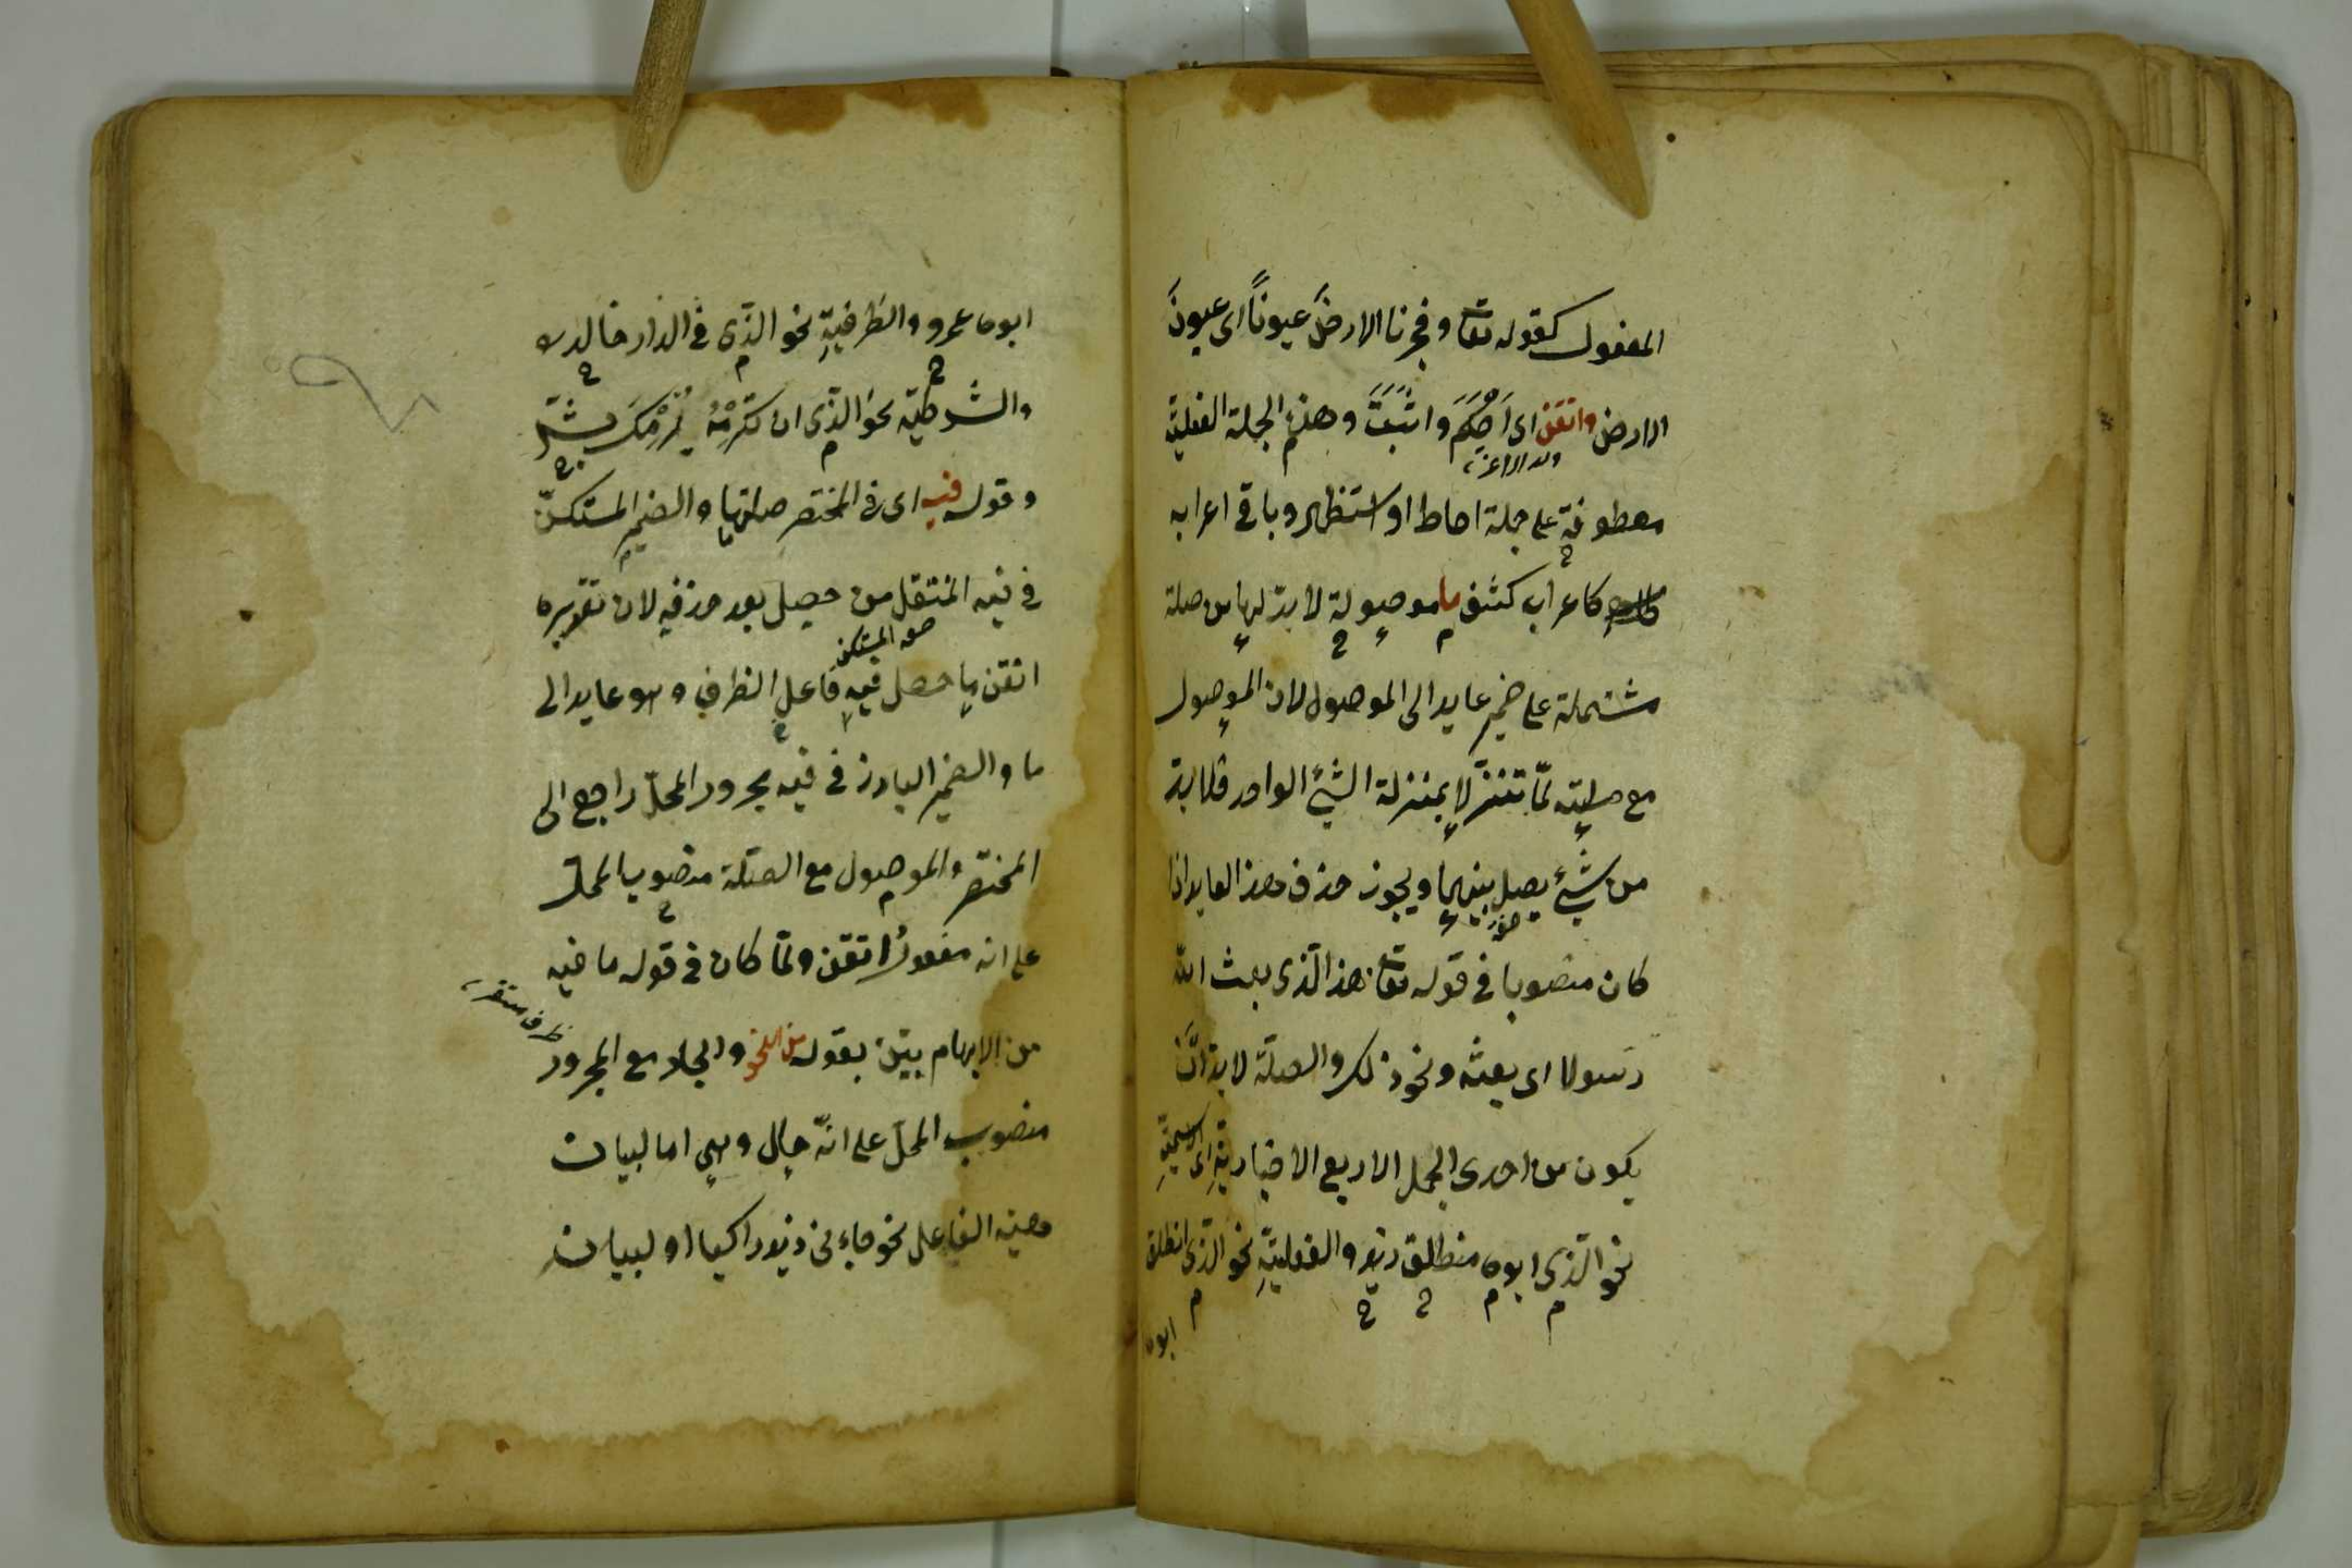 المفعول كقوله تعا وفجرنا الارضَ عيوناً اى عيونَ
الارض واتقن اى اَحْكَمَ واثبَتَ وهذه الجملة الفعلية
معطوفة على جملة احاط او استظهر وباقى اعرابه
كاعراب كشف ما موصولة لا بدّ لها من صلة
مشتملة على ضمير عايد الى الموصول لان الموصول
مع صلته لمّا تنزّلا بمنزلة الشئ الواحد فلا بد
من شئ يصل بينهما ويجوز حذف هذا العايد اذا
كان منصوبا فى قوله تعا هذا الّذى بعث الله
رسولا اى بعثه ونحو ذلك والصلة لا بد انْ
يكون من احدى الجمل الاربع الاخبارية اى الاسميّة
نحو الّذى ابوه منطلق زيد والفعليّةِ نحو الّذى انطلق
ابوه
ابوه عمرو والظرفيةِ نحو الّذى فى الدار خالد
والشرطية نحو الّذى ان تكرمْهُ يُكرمْكَ بشر
وقوله فيه اى فى المختصر صلتها والضمير المستكنّ
فى فيه المنتقل من حصل بعد حذفه لان تقديره
اتقن ما حصل فيه فاعل الظرف وهو عايد الى
هو المستكن
ما والضمير البارز فى فيه مجرور المحلّ راجع الى
المختصر والموصول مع الصلة منصوب المحل
على انه مفعول اتقن ولمّا كان فى قوله ما فيه
من الابهام بيّن بقوله من النحو والجار مع المجرور
ظرف مستقر
منصوب المحلّ على انّه حال وهى اما لبيان
هيئة الفاعل نحو جاءنى زيد راكبا او لبيان